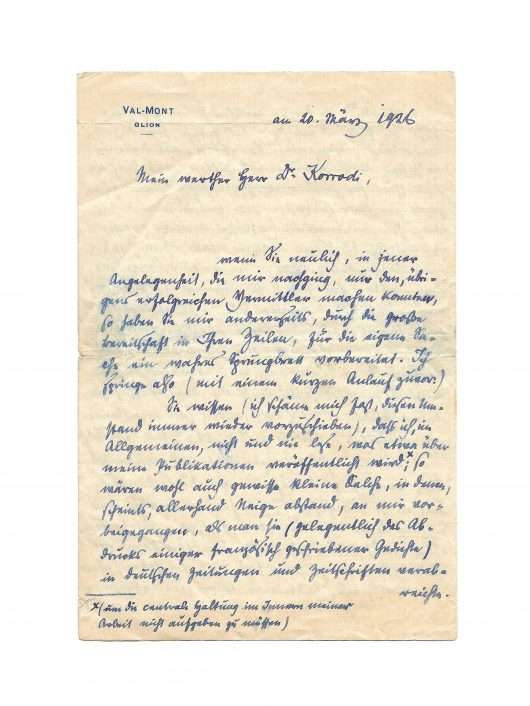 VAL-MONT
GLION
am 20. März 1926
Mein werther Herr Dr Korrodi,
wenn Sie neulich, in jener
Angelegenheit, die mir nachging, nur den, übri-
gens erfolgreichen Vermittler machen konnten,
so haben Sie mir andererseits, durch die große
Bereitschaft in Ihren Zeilen, für die eigene Sa-
che ein wahres Sprungbrett vorbereitet. Ich
springe also (mit einem kurzen Anlauf zuvor:)
Sie wissen (ich schäme mich fast, diesen Um-
stand immer wieder vorzuschieben), daß ich, im
Allgemeinen, nicht und nie lese, was etwa über
meine Publikationen veröffentlicht wird;x so
wären wohl auch gewisse kleine Kelche, in denen,
scheints, allerhand Neige abstand, an mir vor-
beigegangen, als man sie (gelegentlich des Ab-
drucks einiger französisch geschriebener Gedichte)
in deutschen Zeitungen und Zeitschriften verab-
reichte.
x(um die centrale Haltung im Innern meiner
Arbeit nicht aufgeben zu müssen)